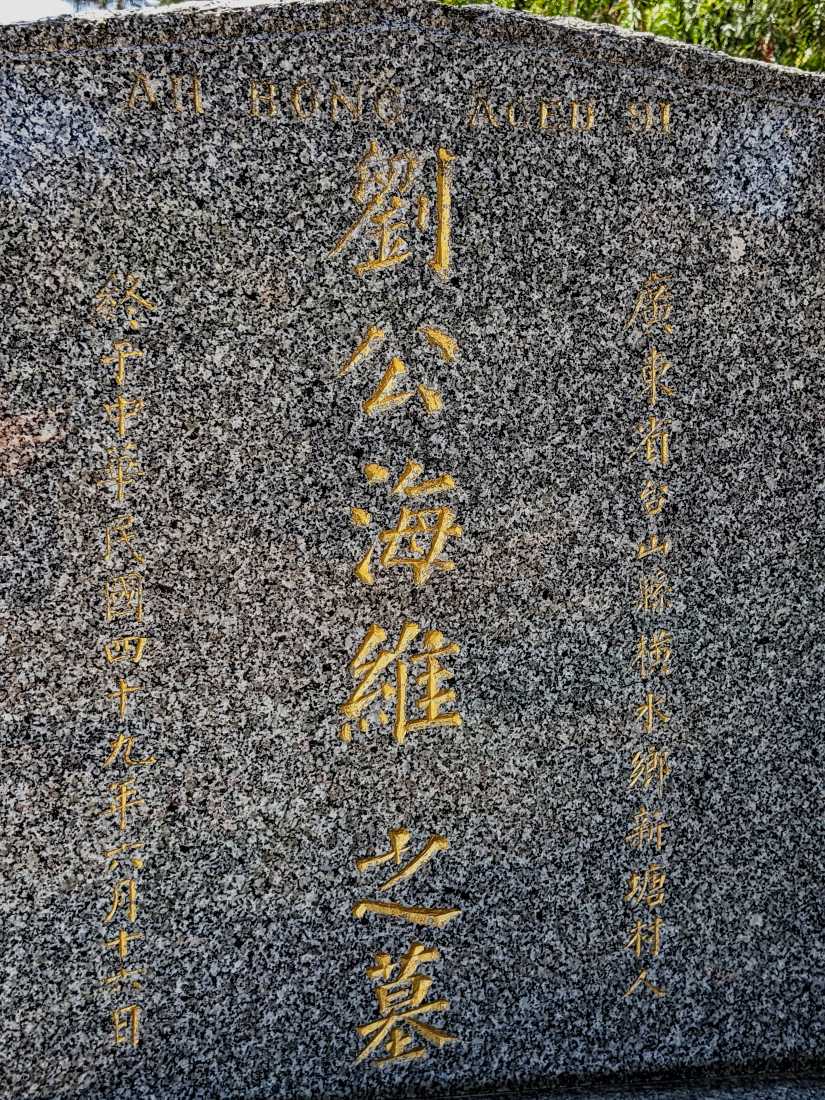 AH BONG AGED 91
廣東省台山縣橫水鄉新塘村人
劉公海維之墓
終于中華民國四十九年六月十六日